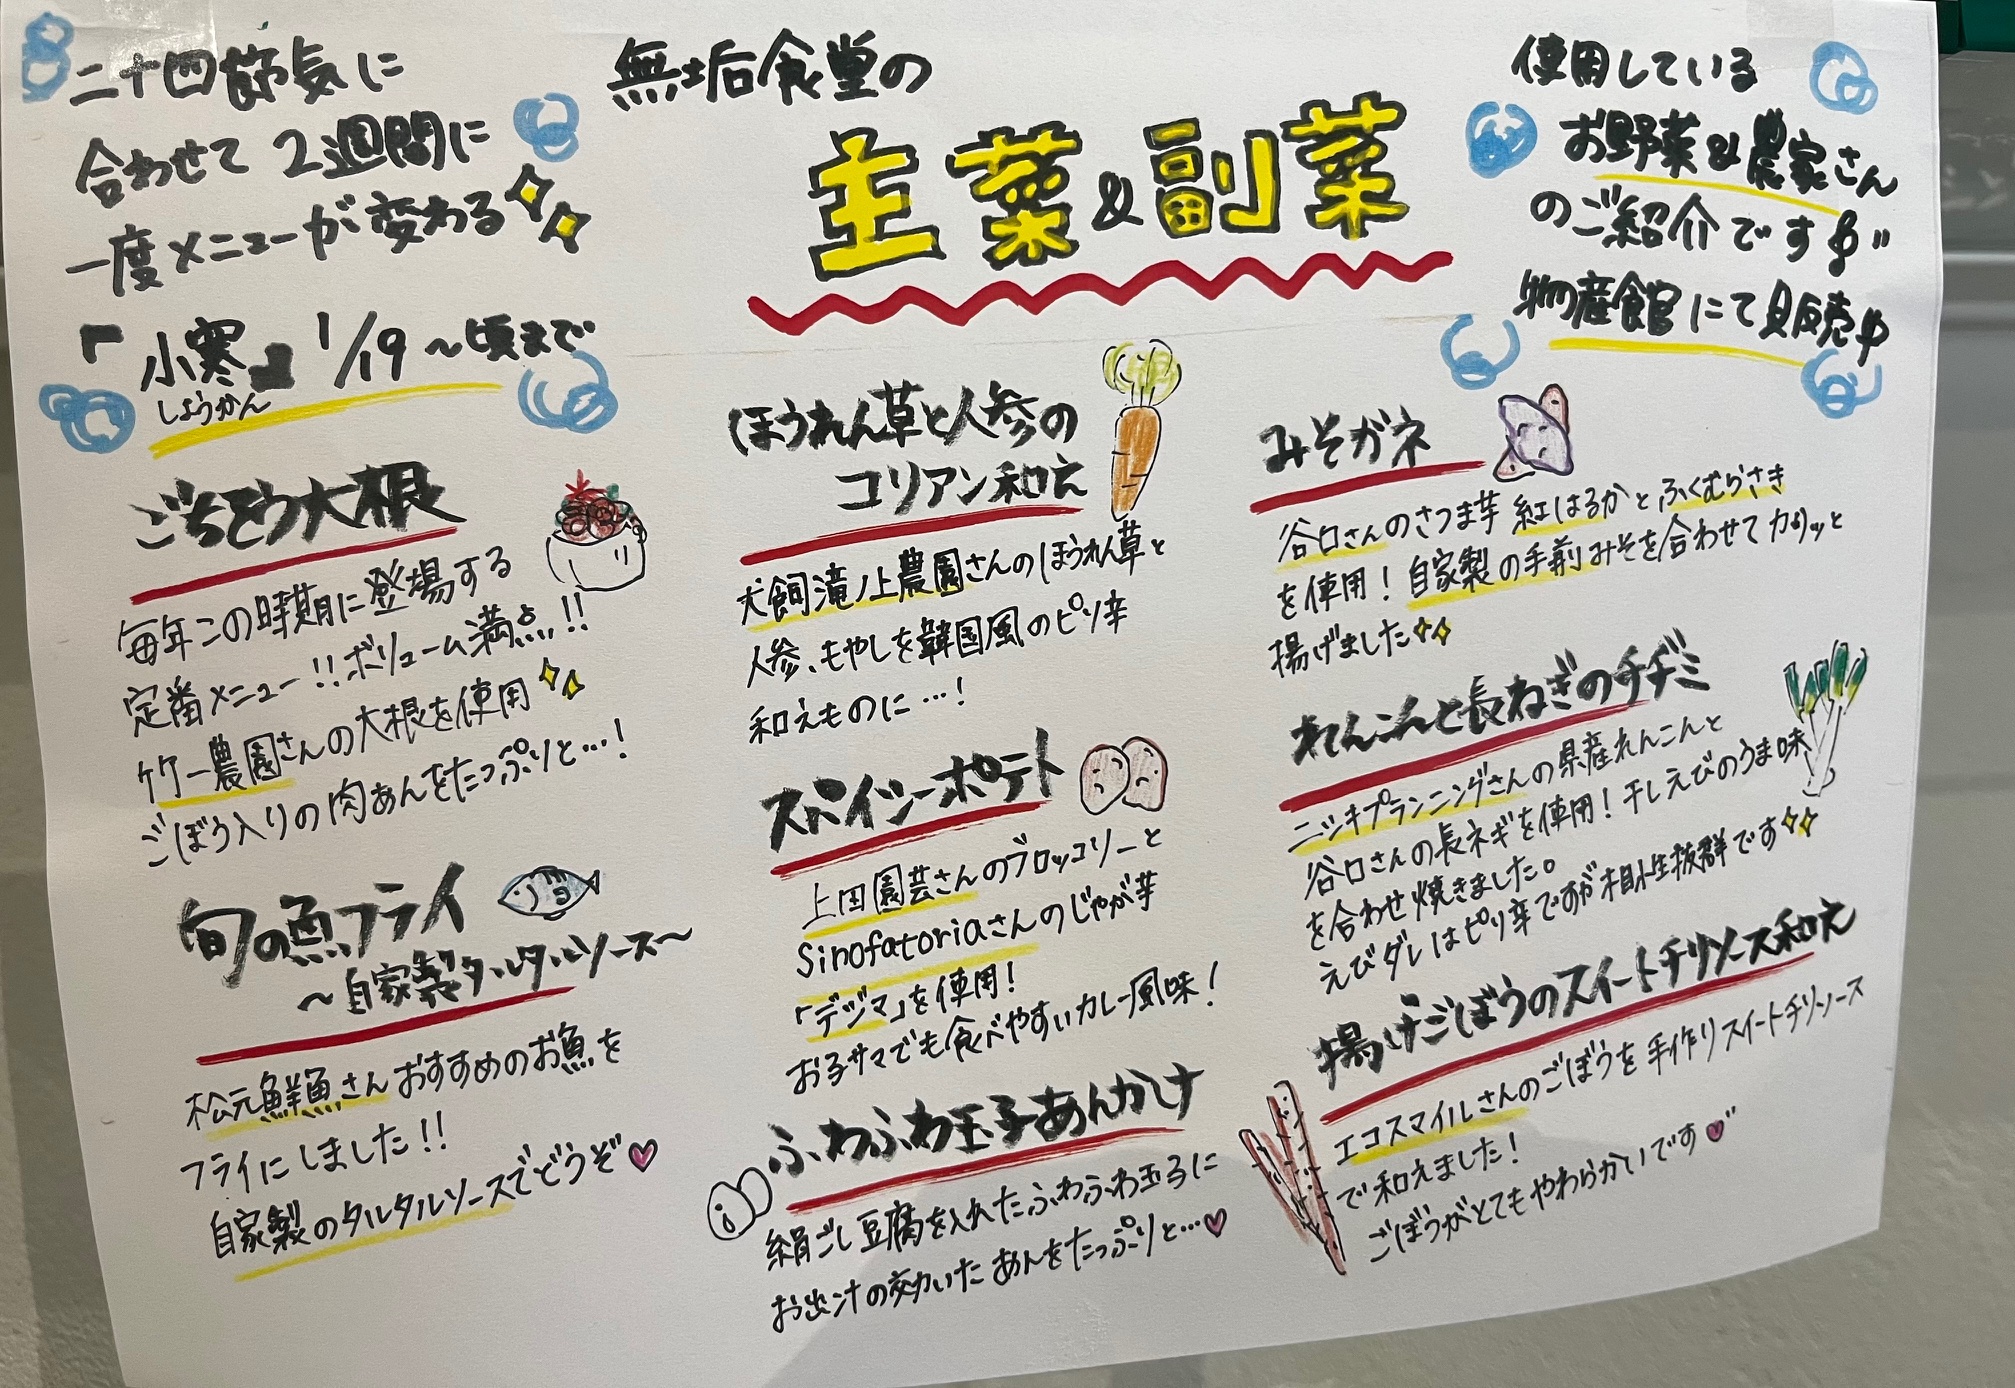 二十四節気に
合わせて2週間に
一度メニューが変わる
「小寒」1/19〜頃まで
しょうかん
無垢食堂の
主菜&副菜
使用している
お野菜&農家さん
のご紹介です
物産館にて販売中
ごちそう大根
毎年この時期に登場する
定番メニュー!!ボリューム満点!!
竹一農園さんの大根を使用
ごぼう入りの肉あんをたっぷりと…!
旬の魚フライ
〜自家製タルタルソース〜
松元鮮魚さんおすすめのお魚を
フライにしました!!
自家製のタルタルソースでどうぞ♡
ほうれん草と人参の
コリアン和え
犬飼滝ノ上農園さんのほうれん草と
人参、もやしを韓国風のピリ辛
和えものに…!
スパイシーポテト
上田園芸さんのブロッコリーと
Sinofatoriaさんのじゃが芋
「デジマ」を使用!
お子サマでも食べやすいカレー風味!
ふわふわ玉子あんかけ
絹ごし豆腐を入れたふわふわ玉子に
お出汁の効いたあんをたっぷりと…♡
みそガネ
谷口さんのさつま芋 紅はるかとふくむらさき
を使用!自家製の手前みそを合わせてカリッと
揚げました
れんこんと長ねぎのチヂミ
ニシキプランニングさんの県産れんこんと
谷口さんの長ネギを使用!干しえびのうま味
を合わせ焼きました。
えびダレはピリ辛ですが相性抜群です
揚げごぼうのスイートチリソース和え
エコスマイルさんのごぼうを手作りスイートチリソース
で和えました!
ごぼうがとてもやわらかいです♡